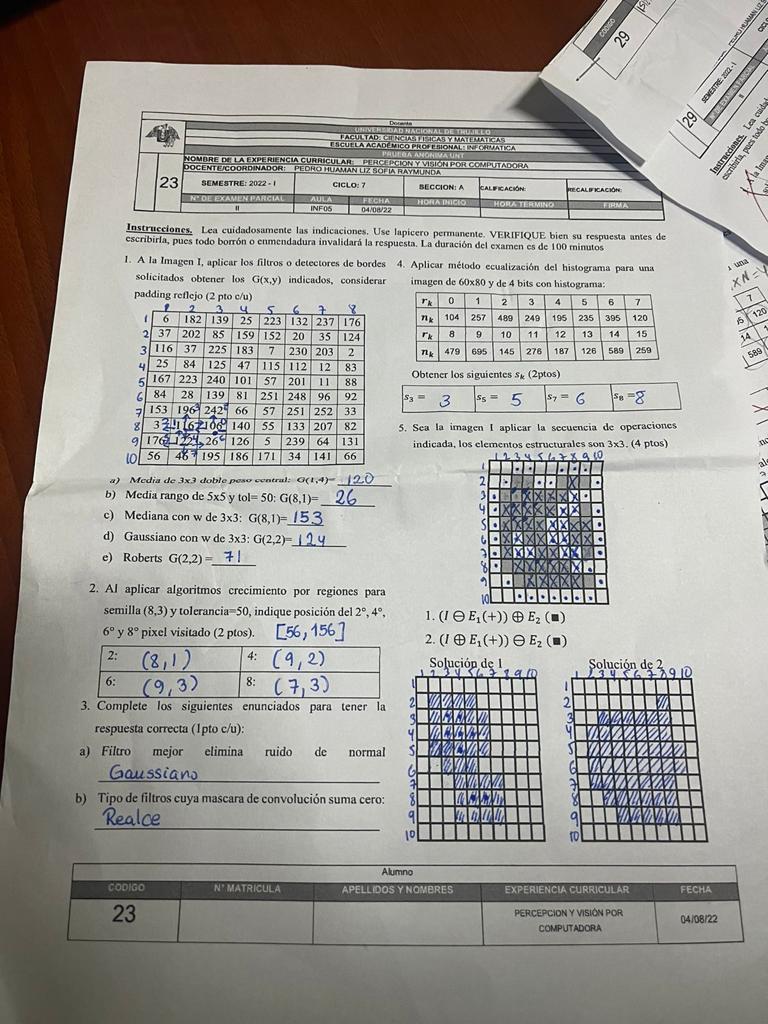 Docente
UNIVERSIDAD NACIONAL DE TRUJILLO
FACULTAD: CIENCIAS FISICAS Y MATEMATICAS
ESCUELA ACADÉMICO PROFESIONAL: INFORMATICA
PRUEBA ANÓNIMA UNT
NOMBRE DE LA EXPERIENCIA CURRICULAR: PERCEPCION Y VISIÓN POR COMPUTADORA
DOCENTE/COORDINADOR: PEDRO HUAMAN LIZ SOFIA RAYMUNDA
23 SEMESTRE: 2022 - I CICLO: 7 SECCION: A CALIFICACIÓN: RECALIFICACIÓN:
N° DE EXAMEN PARCIAL AULA FECHA HORA INICIO HORA TERMINO FIRMA
II INF05 04/08/22
Instrucciones. Lea cuidadosamente las indicaciones. Use lapicero permanente. VERIFIQUE bien su respuesta antes de
escribirla, pues todo borrón o enmendadura invalidará la respuesta. La duración del examen es de 100 minutos
1. A la Imagen I, aplicar los filtros o detectores de bordes
solicitados obtener los G(x,y) indicados, considerar
padding reflejo (2 pto c/u)
1 2 3 4 5 6 7 8
1 6 182 139 25 223 132 237 176
2 37 202 85 159 152 20 35 124
3 116 37 225 183 7 230 203 2
4 25 84 125 47 115 112 12 83
5 167 223 240 101 57 201 11 88
6 84 28 139 81 251 248 96 92
7 153 196 242 66 57 251 252 33
8 167 106 140 55 133 207 82
9 176 122 26 126 5 239 64 131
10 56 46 195 186 171 34 141 66
a) Media de 3x3 doble peso central: G(1,4)= 120
b) Media rango de 5x5 y tol= 50: G(8,1)= 26
c) Mediana con w de 3x3: G(8,1)= 153
d) Gaussiano con w de 3x3: G(2,2)= 124
e) Roberts G(2,2) = 71
2. Al aplicar algoritmos crecimiento por regiones para
semilla (8,3) y tolerancia=50, indique posición del 2°, 4°,
6° y 8° pixel visitado (2 ptos). [56, 156]
2: (8,1) 4: (9,2)
6: (9,3) 8: (7,3)
3. Complete los siguientes enunciados para tener la
respuesta correcta (1pto c/u):
a) Filtro mejor elimina ruido de normal
Gaussiano
b) Tipo de filtros cuya mascara de convolución suma cero:
Realce
4. Aplicar método ecualización del histograma para una
imagen de 60x80 y de 4 bits con histograma:
rk 0 1 2 3 4 5 6 7
nk 104 257 489 249 195 235 395 120
rk 8 9 10 11 12 13 14 15
nk 479 695 145 276 187 126 589 259
Obtener los siguientes sk (2ptos)
S3 = 3 S5 = 5 S7 = 6 S8 = 8
5. Sea la imagen I aplicar la secuencia de operaciones
indicada, los elementos estructurales son 3x3. (4 ptos)
1 2 3 4 5 6 7 8 9 10
1
2
3
4
5
6
7
8
9
10
1. (I ⊖ E1(+)) ⊕ E2 (■)
2. (I ⊕ E1(+)) ⊖ E2 (■)
Solución de 1
1 2 3 4 5 6 7 8 9 10
1
2
3
4
5
6
7
8
9
10
Solución de 2
1 2 3 4 5 6 7 8 9 10
1
2
3
4
5
6
7
8
9
10
Alumno
CODIGO N° MATRICULA APELLIDOS Y NOMBRES EXPERIENCIA CURRICULAR FECHA
23 PERCEPCION Y VISIÓN POR
COMPUTADORA 04/08/22
CODIGO
29
29
SEMESTRE: 2022 - I
II
Instrucciones. Lea
escribirla, pues todo